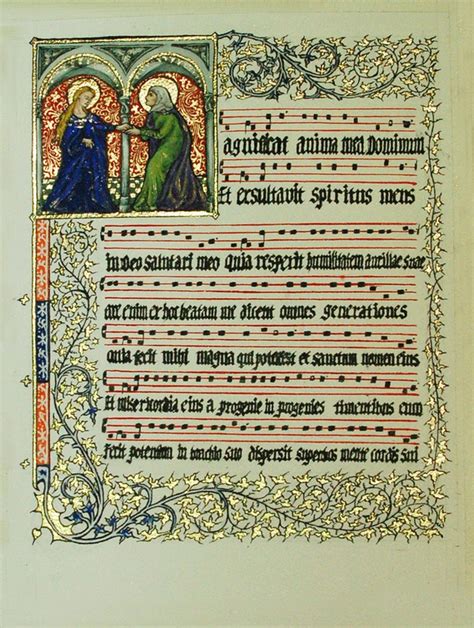 agnificat anima mea Dominum
Et exsultavit spiritus meus
in deo salutari meo quia respexit humilitatem ancillae suae
ecce enim ex hoc beatam me dicent omnes generationes
quia fecit mihi magna qui potens est et sanctum nomen eius
Et misericordia eius a progenie in progenies timentibus eum
fecit potentiam in brachio suo dispersit superbos mente cordis sui